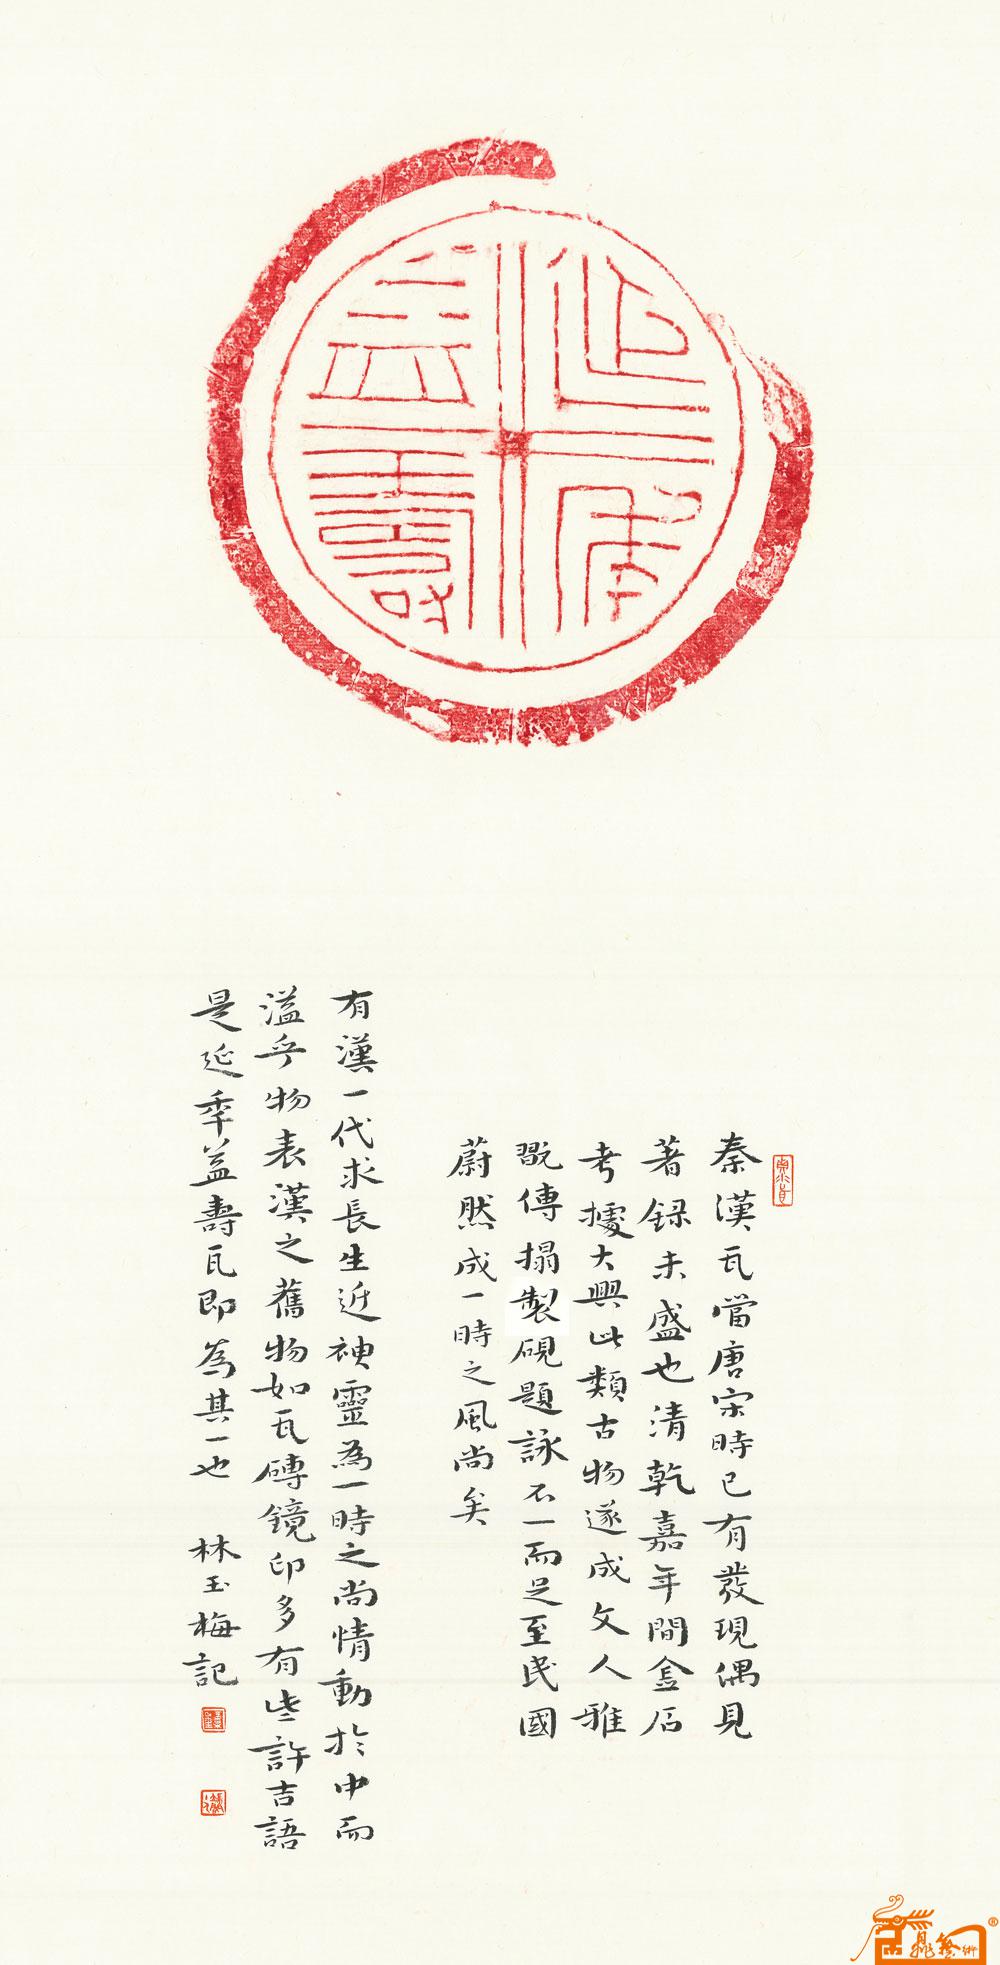 延年
益壽
秦漢瓦當唐宋時已有發現偶見
著録未盛也清乾嘉年間金石
考據大興此類古物遂成文人雅
翫傳搨製硯題詠不一而足至民國
蔚然成一時之風尚矣
有漢一代求長生近神靈為一時之尚情動於中而
溢乎物表漢之舊物如瓦磚鏡印多有些許吉語
是延年益壽瓦即為其一也 林玉梅記